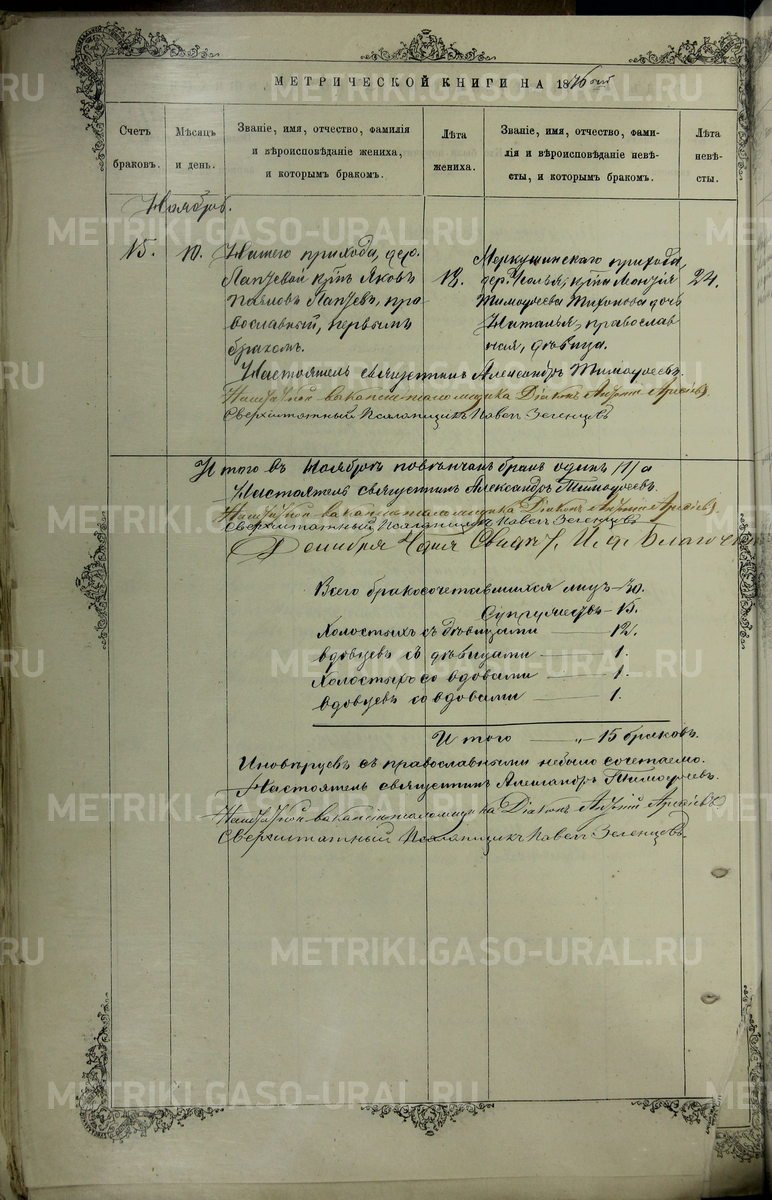 МЕТРИЧЕСКОЙ КНИГИ НА 1876 год
Счетъ браковъ.
Мѣсяцъ и день.
Званіе, имя, отчество, фамилія и вѣроисповѣданіе жениха, и которымъ бракомъ.
Лѣта жениха.
Званіе, имя, отчество, фамилія и вѣроисповѣданіе невѣсты, и которымъ бракомъ.
Лѣта невѣсты.
Ноябрь.
15.
10.
Нашего прихода, дер.
Лаптевой крн Яковъ
Павловъ Лаптевъ, пра-
вославный, первымъ
бракомъ.
18.
Меркушинскаго прихода,
дер. крн
Тимофеева Тихонова дочь
Наталья, православ-
ная, дѣвица.
24.
Настоятель священникъ Александръ Тимофеевъ.
Діаконъ
Сверхштатный Псаломщикъ Павелъ Зеленцовъ
Итого въ Ноябрѣ повѣнчанъ бракъ одинъ /1/
Настоятель священникъ Александръ Тимофеевъ.
Діаконъ
Сверхштатный Псаломщикъ Павелъ Зеленцовъ
Декабря
Всего бракосочетавшихся лицъ - 30.
Супружествъ - 15.
Холостыхъ съ дѣвицами — 12.
вдовцевъ съ дѣвицами — 1.
Холостыхъ со вдовами — 1.
вдовцевъ со вдовами — 1.
Итого — „ - 15 браковъ.
Иновѣрцевъ съ православными небыло сочетаемо.
Настоятель священникъ Александръ Тимофеевъ.
Діаконъ
Сверхштатный Псаломщикъ Павелъ Зеленцовъ.
METRIKI.GASO-URAL.RU